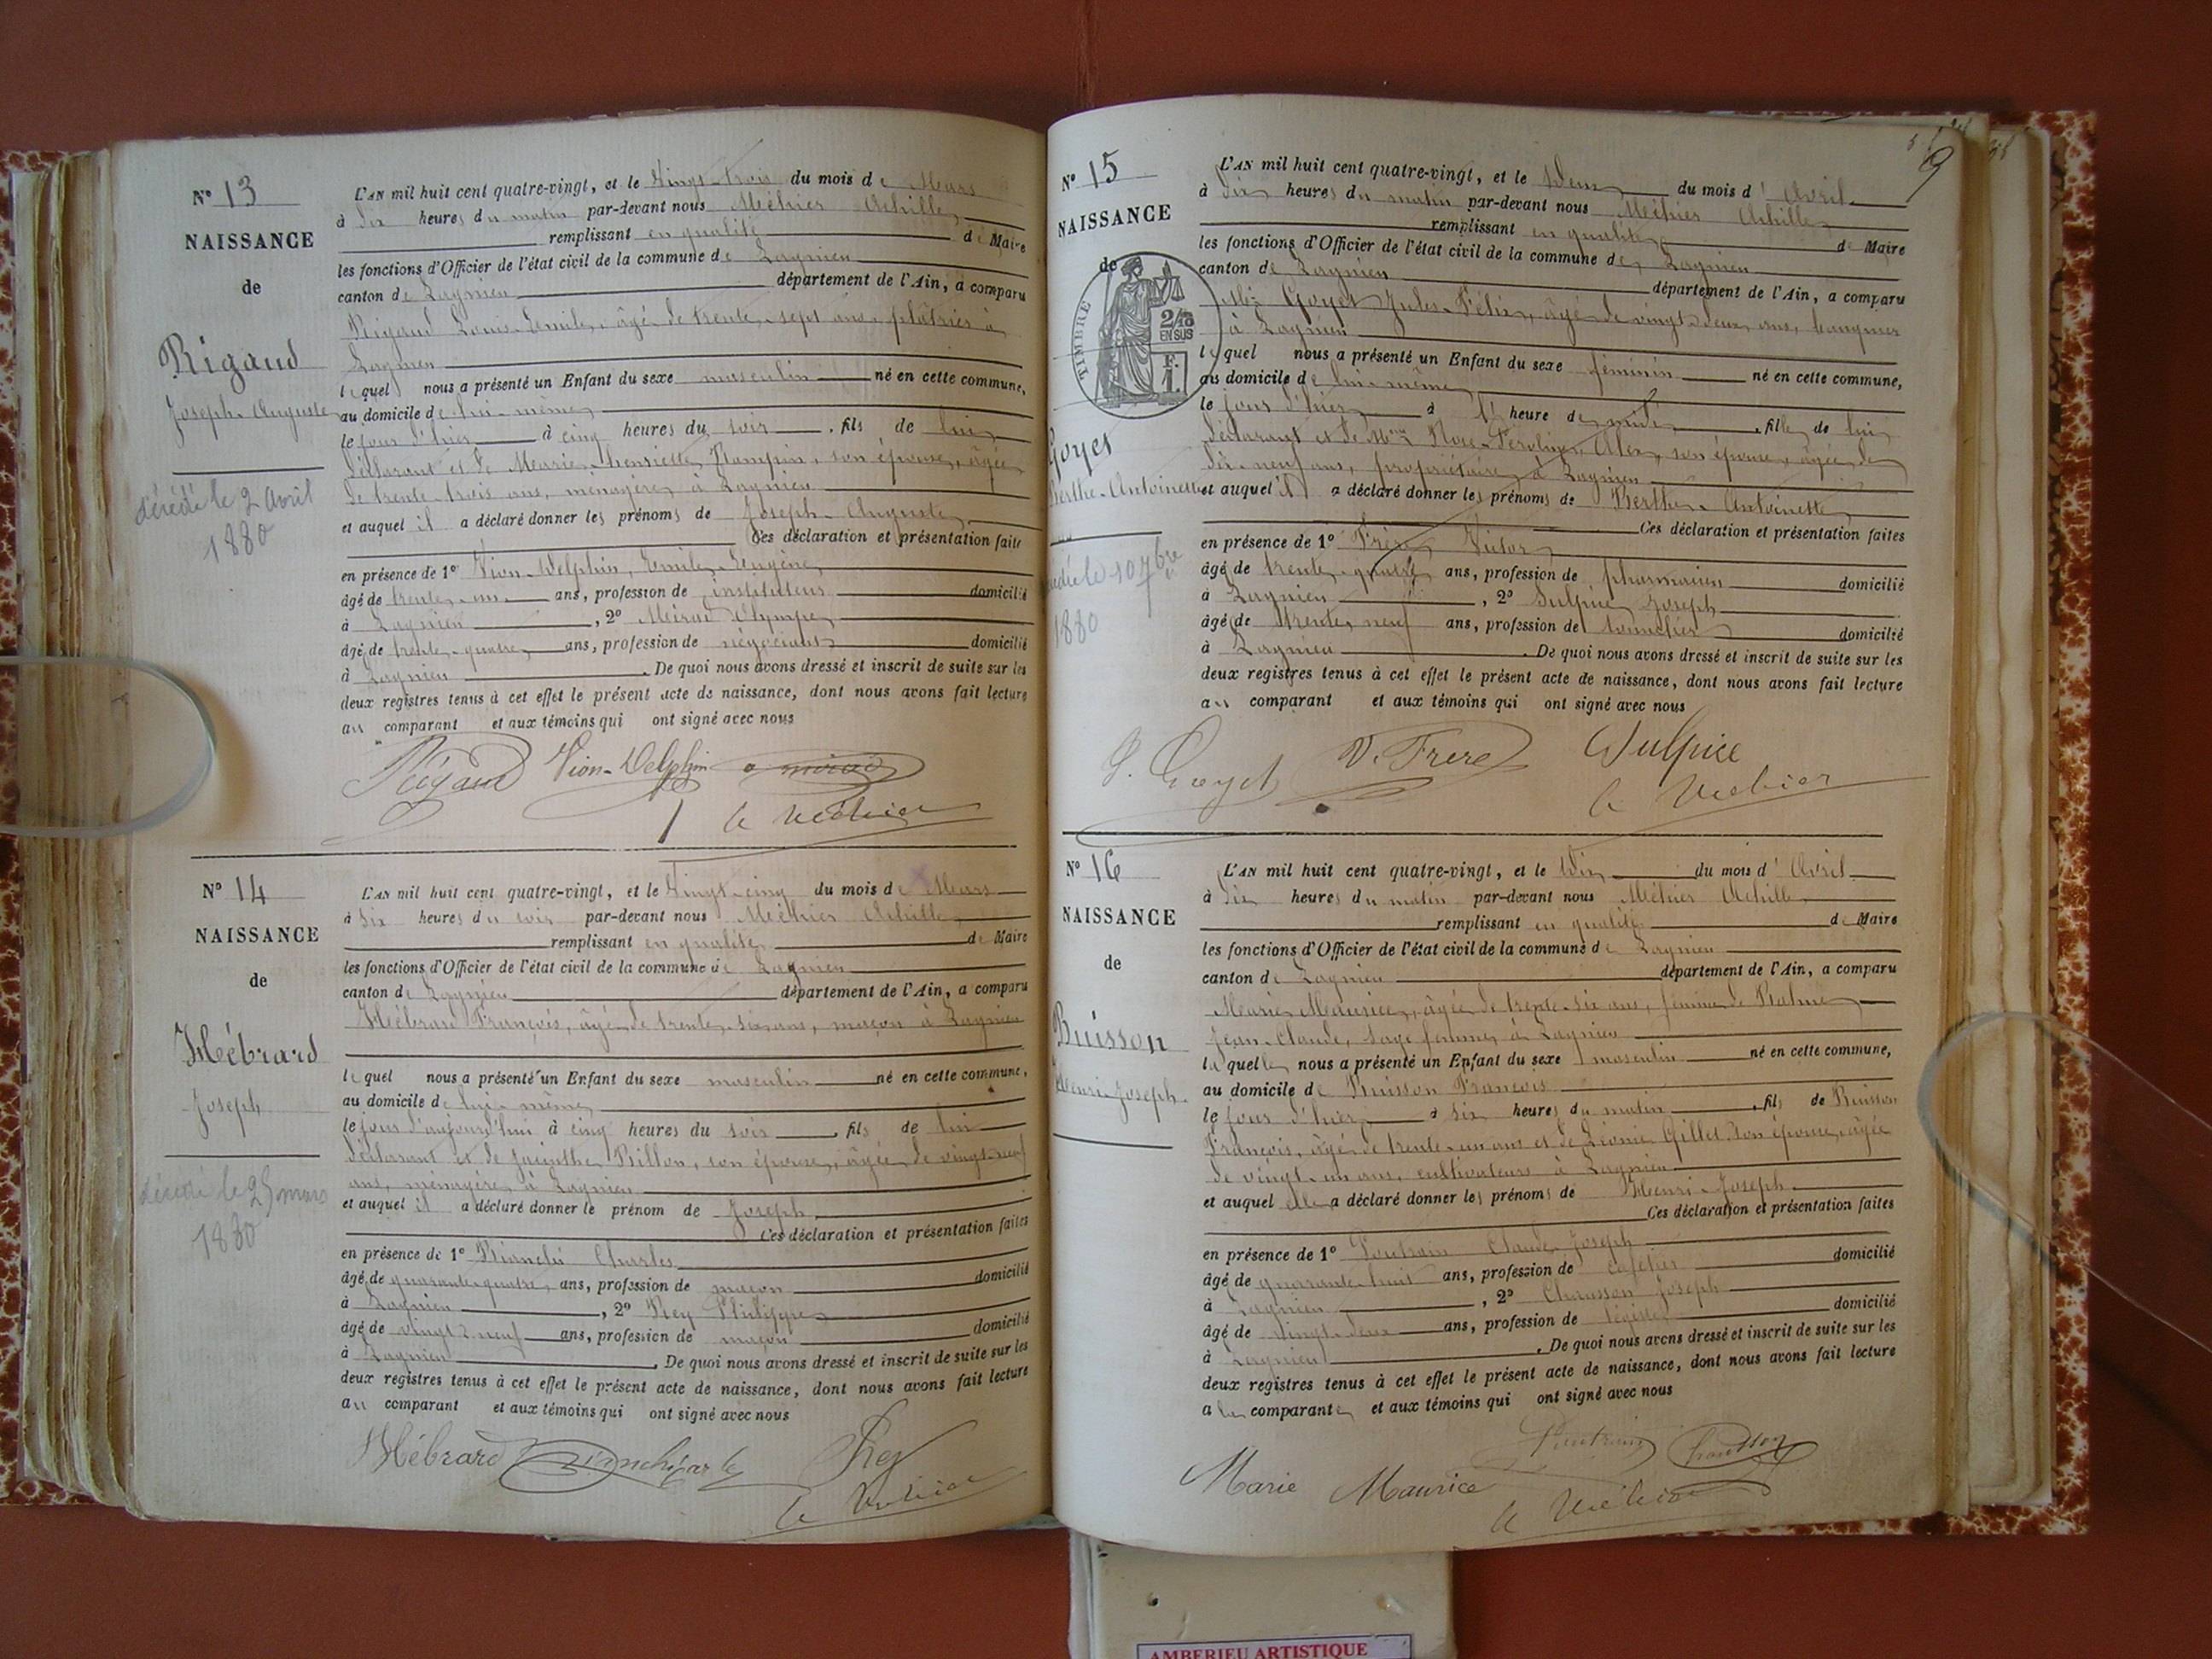 N° 13
NAISSANCE
de
Rigaud
Joseph-Auguste
décédé le 2 avril
1880
L'AN mil huit cent quatre-vingt, et le Vingt-trois du mois de Mars
à dix heures du matin par-devant nous Méhier Achille
remplissant en qualité de Maire
les fonctions d'Officier de l'état civil de la commune de Lagnieu
canton de Lagnieu département de l'Ain, a comparu
Rigaud Louis-Emile, âgé de trente-sept ans, plâtrier à
Lagnieu
lequel nous a présenté un Enfant du sexe masculin né en cette commune,
au domicile de lui-même
le jour d'hier à cinq heures du soir, fils de lui
déclarant et de Marie-henriette Rampin, son épouse, âgée
de trente-trois ans, ménagère, à Lagnieu
et auquel il a déclaré donner les prénoms de Joseph-Auguste
Ces déclaration et présentation faite
en présence de 1° Vion-Delphin, Emile-Eugène
âgé de trente-un ans, profession de instituteur domicilié
à Lagnieu, 2° Mérod Olympe
âgé de trente-quatre ans, profession de négociant domicilié
à Lagnieu. De quoi nous avons dressé et inscrit de suite sur les
deux registres tenus à cet effet le présent acte de naissance, dont nous avons fait lecture
au comparant et aux témoins qui ont signé avec nous
Rigaud Vion-Delphin
A Méhier
N° 14
NAISSANCE
de
Hébrard
Joseph
décédé le 25 mars
1880
L'AN mil huit cent quatre-vingt, et le Vingt-cinq du mois de Mars
à six heures du soir par-devant nous Méhier Achille
remplissant en qualité de Maire
les fonctions d'Officier de l'état civil de la commune de Lagnieu
canton de Lagnieu département de l'Ain, a comparu
Hébrard François, âgé de trente-six ans, maçon à Lagnieu
lequel nous a présenté un Enfant du sexe masculin né en cette commune,
au domicile de lui-même
le jour d'aujourd'hui à cinq heures du soir, fils de lui
déclarant et de Jacinthe Billon, son épouse, âgée de vingt-neuf
ans, ménagère, à Lagnieu
et auquel il a déclaré donner le prénom de Joseph
Ces déclaration et présentation faites
en présence de 1° Bianchi Charles
âgé de quarante-quatre ans, profession de maçon domicilié
à Lagnieu, 2° Rey Philippe
âgé de vingt-neuf ans, profession de maçon domicilié
à Lagnieu. De quoi nous avons dressé et inscrit de suite sur les
deux registres tenus à cet effet le présent acte de naissance, dont nous avons fait lecture
au comparant et aux témoins qui ont signé avec nous
Hébrard Rey
A Méhier
9
N° 15
NAISSANCE
de
TIMBRE
2/10
EN SUS
F.
1.
Goyet
Berthe-Antoinette
1880
L'AN mil huit cent quatre-vingt, et le Deux du mois d'Avril
à dix heures du matin par-devant nous Méhier Achille
remplissant en qualité de Maire
les fonctions d'Officier de l'état civil de la commune de Lagnieu
canton de Lagnieu département de l'Ain, a comparu
Mr Goyet Jules-Félix, âgé de vingt-deux ans, banquier
à Lagnieu
lequel nous a présenté un Enfant du sexe féminin né en cette commune,
au domicile de lui-même
le jour d'hier à heure de midi, fille de lui
déclarant et de Mme son épouse, âgée de
dix-neuf ans, propriétaire, à Lagnieu
et auquel il a déclaré donner les prénoms de Berthe-Antoinette
Ces déclaration et présentation faites
en présence de 1° Frère Victor
âgé de trente-quatre ans, profession de pharmacien domicilié
à Lagnieu, 2° Sulpice Joseph
âgé de trente-neuf ans, profession de domicilié
à Lagnieu. De quoi nous avons dressé et inscrit de suite sur les
deux registres tenus à cet effet le présent acte de naissance, dont nous avons fait lecture
au comparant et aux témoins qui ont signé avec nous
J. Goyet V. Frere Sulpice
A Méhier
N° 16
NAISSANCE
de
Buisson
Henri-Joseph
L'AN mil huit cent quatre-vingt, et le Dix du mois d'Avril
à dix heures du matin par-devant nous Méhier Achille
remplissant en qualité de Maire
les fonctions d'Officier de l'état civil de la commune de Lagnieu
canton de Lagnieu département de l'Ain, a comparu
Marie Maurice, âgée de trente-six ans, femme de
Jean-Claude, sage femme, à Lagnieu
laquelle nous a présenté un Enfant du sexe masculin né en cette commune,
au domicile de Buisson François
le jour d'hier à six heures du matin, fils de Buisson
François, âgé de trente-un ans et de Léonie Gillet son épouse, âgée
de vingt-un ans, cultivateurs à Lagnieu
et auquel elle a déclaré donner les prénoms de Henri-Joseph
Ces déclaration et présentation faites
en présence de 1° Claude Joseph
âgé de quarante-huit ans, profession de cafetier domicilié
à Lagnieu, 2° Chausson Joseph
âgé de vingt-deux ans, profession de domicilié
à Lagnieu. De quoi nous avons dressé et inscrit de suite sur les
deux registres tenus à cet effet le présent acte de naissance, dont nous avons fait lecture
a la comparante et aux témoins qui ont signé avec nous
Marie Maurice Chausson
A Méhier
AMBERIEU ARTISTIQUE